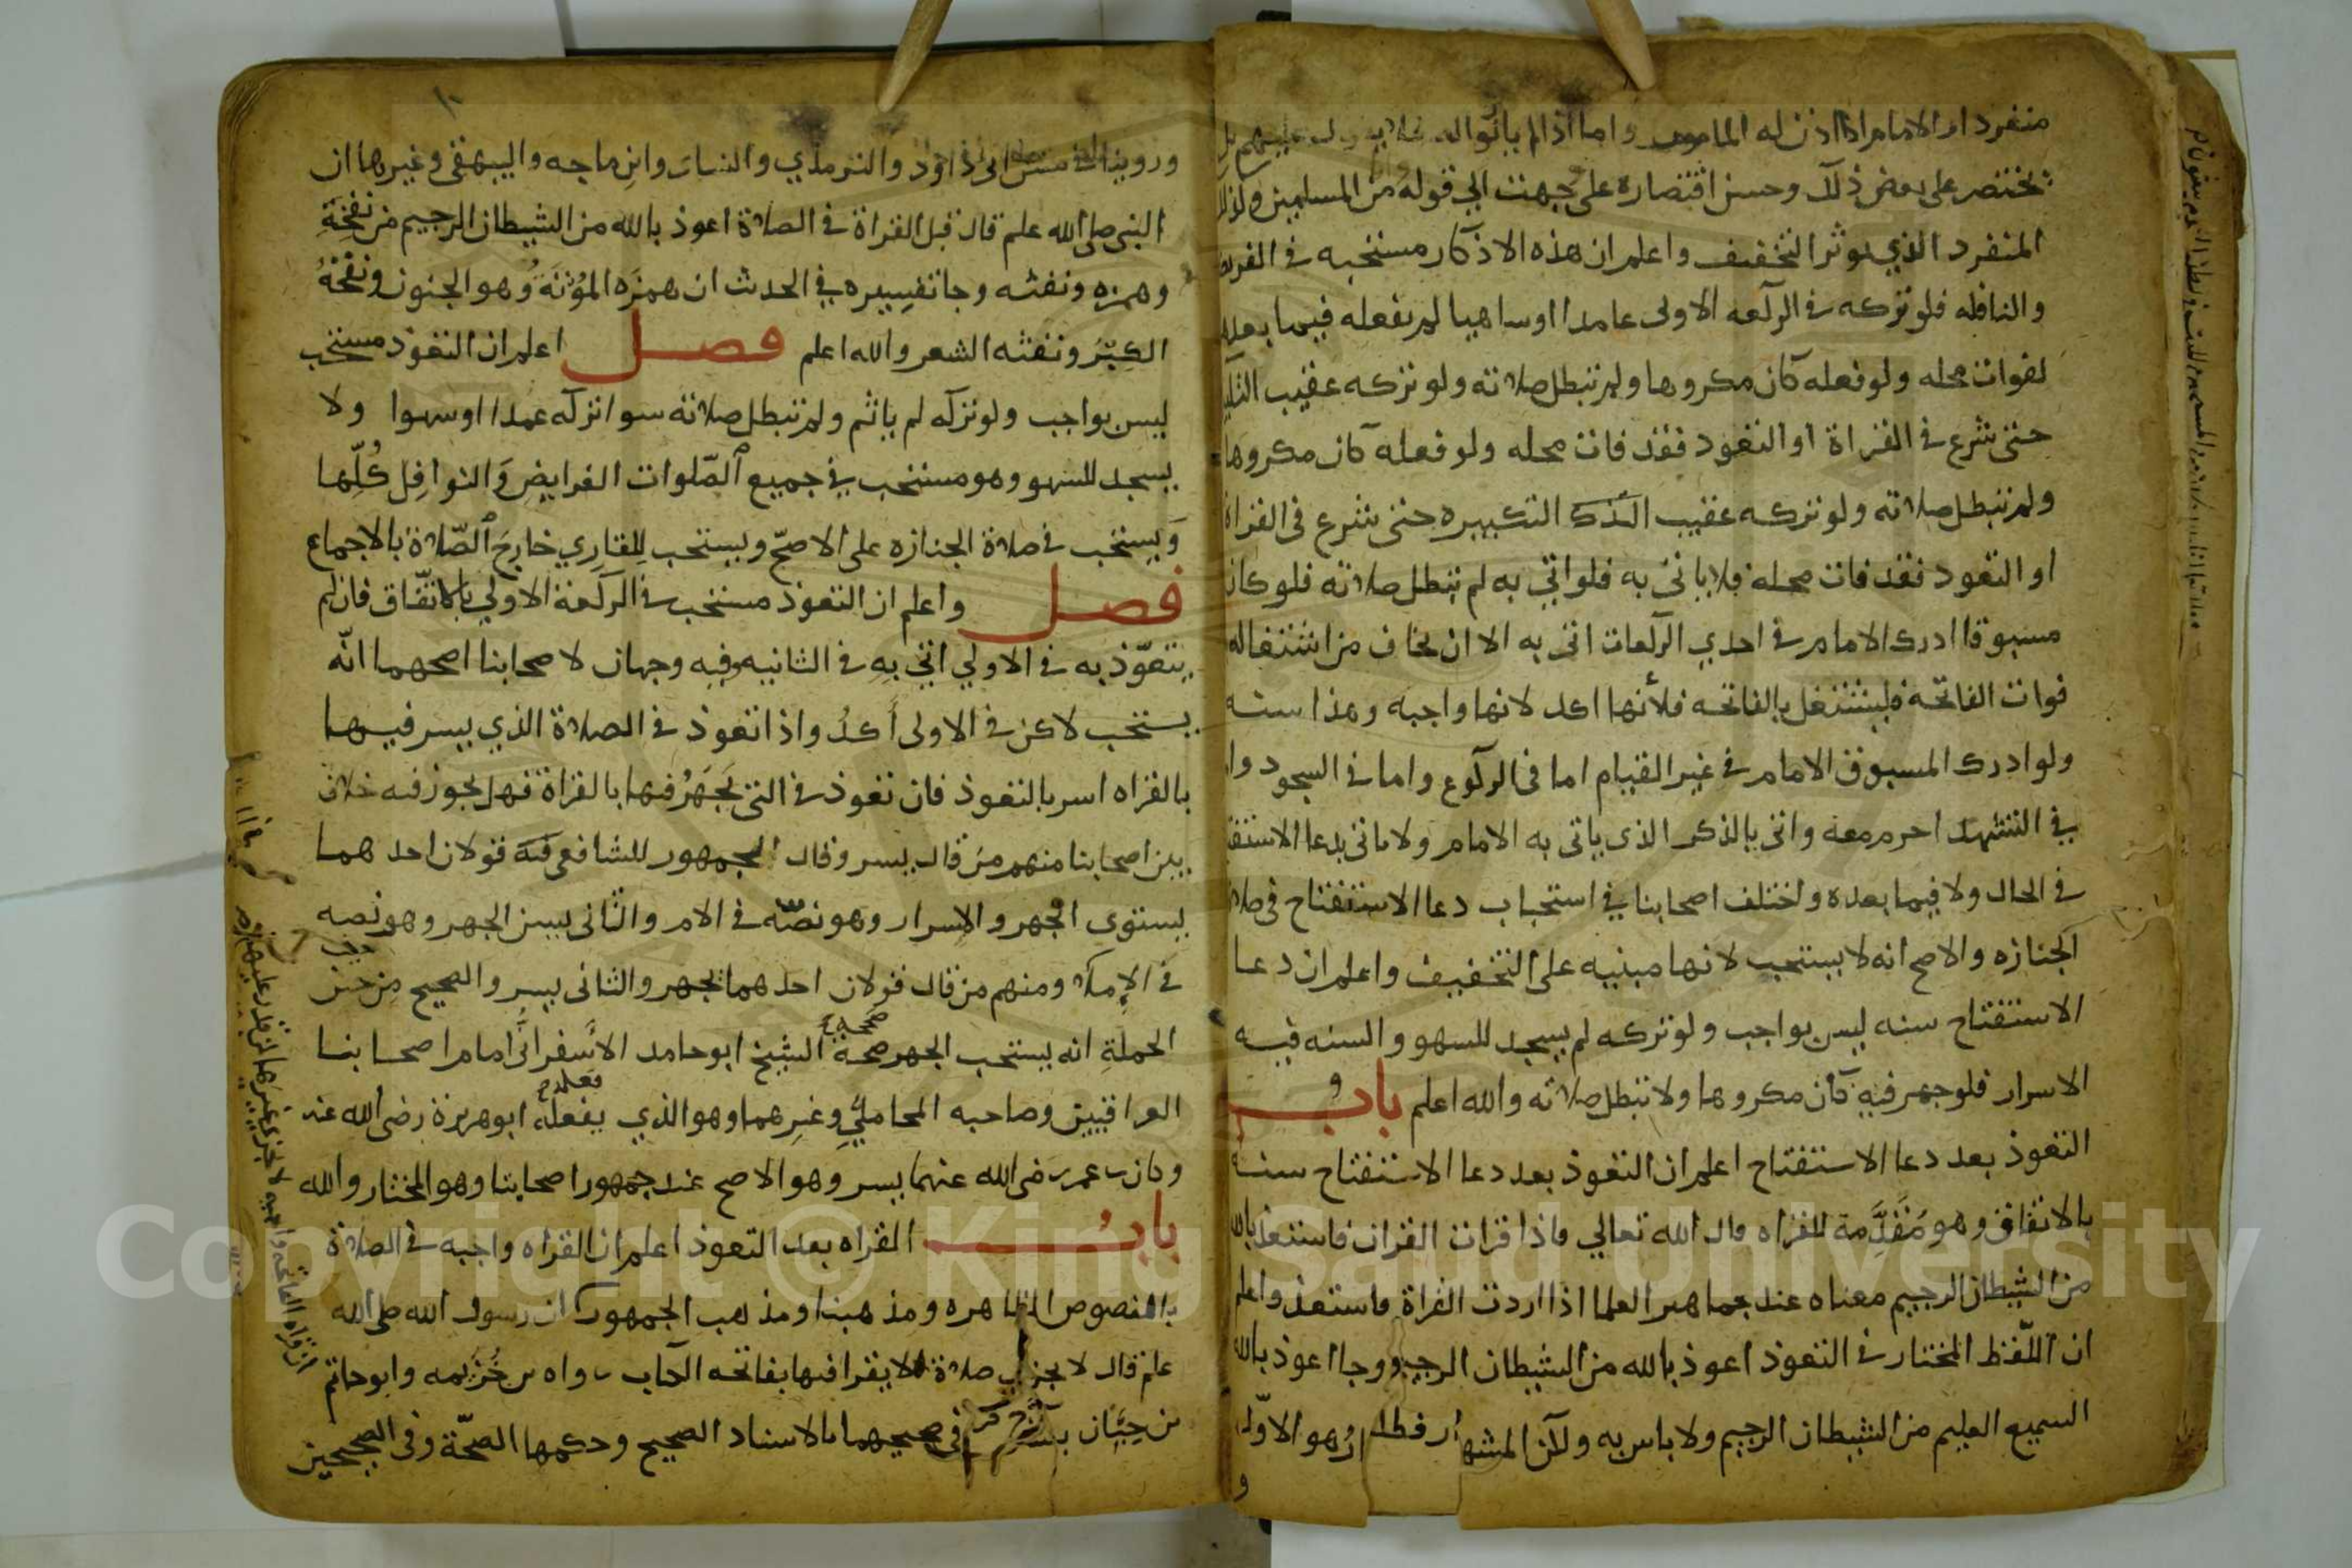 منفردا او الاماما اذا اذن له المامومون واما اذا لم ياذنوا له فلا يطول عليهم بل
يختصر على بعض ذلك وحسن اقتصاره على وجهت الي قوله من المسلمين وكذلك
المنفرد الذي يوثر التخفيف واعلم ان هذه الاذكار مستحبه في الفريضه
والنافله فلو تركه في الركعه الاولى عامدا اوساهيا لم يفعله فيما بعدها
لفوات محله ولو فعله كان مكروها ولم تبطل صلاته ولو تركه عقيب التكبير
حتى شرع في القراة او التعوذ فقد فات محله ولو فعله كان مكروها
ولم تبطل صلاته ولو تركه عقيب التكبيره حتى شرع فى القراة
او التعود فقد فات محله فلا ياتي به فلو اتي به لم تبطل صلاته فلو كان
مسبوقا ادرك الامام في احدي الركعات اتى به الا ان يخاف من اشتغاله
فوات الفاتحه فليشتغل بالفاتحه فلأنها اكد لانها واجبه وهذا سنه
ولو ادرك المسبوق الامام في غير القيام اما فى الركوع واما في السجود واما
في التشهد احرم معه واتى بالذكر الذى ياتى به الامام ولا ياتى بدعا الاستفتاح
في الحال ولا فيما بعده واختلف اصحابنا في استحباب دعا الاستفتاح فى صلاة
الجنازه والاصح انه لا يستحب لانها مبنيه على التخفيف واعلم ان دعا
الاستفتاح سنه ليس بواجب ولو تركه لم يسجد للسهو والسنه فيه
الاسرار فلو جهر فيه كان مكروها ولا تبطل صلاته والله اعلم باب
التعوذ بعد دعا الاستفتاح اعلم ان التعوذ بعد دعا الاستفتاح سنه
بالاتفاق وهو مُقَدِّمة للقراه قال الله تعالي فاذا قرات القران فاستعذ بالله
من الشيطان الرجيم معناه عند جماهير العلما اذا اردت القراة فاستعذ واعلم
ان اللّفظ المختار في التعوذ اعوذ بالله من الشيطان الرجيم وجا اعوذ بالله
السميع العليم من الشيطان الرجيم ولا باس به ولكن المشهور هو الاوّل
و
١٠
وروينا في سنن ابى داوُد والترمذي والنساى وابن ماجه والبيهقى وغيرها ان
النبى صلى الله علم قال قبل القراة في الصلاة اعوذ بالله من الشيطان الرجيم من نفخِهِ
وهمزه ونفثه وجا تفسيره في الحدث ان همزَه المُوْتَةَ وُهو الجنون ونفخهُ
الكِبْرُ ونفثه الشعر والله اعلم فصل اعلم ان التعوّذ مستحب
ليس بواجب ولو تركه لم ياثم ولم تبطل صلاته سوا تركه عمدا اوسهوا ولا
يسجد للسهو وهو مستحب في جميع الصّلوات الفرايضِ وَالنوافِل كُلّها
وَيستحب في صلاة الجنازه على الاصحّ ويستحب لِلقارِي خارِجَ الصّلاة بالاجماع
فصل واعلم ان التعوذ مستحب في الركعة الاولي بالاتفّاق فان لم
يتعوّذ به في الاولي اتي بهِ في الثانيه وفِيهِ وجهان لاصحابنا اصحهما انّه
يستحب لاكن في الاولى أَكدُ واذا تعوذ في الصلاة الذي يسر فيها
بالقراه اسر بالتعوذ فان تعوذ في التى يَجهَرُ فيها بالقراة فهل يجوز فيه خلاف
بين اصحابنا منهم من قال يسر وقال الجمهور للشافعى فيه قولان احدهما
يستوى الجهر والاسرار وهو نصّه في الام والثانى يسن الجهر وهو نصه
في الإملا ومنهم من قال قولان احدهما يجهر والثانى يسر والصحيح من حيث
الجملةِ انه يستحب الجهر صححه الشيخ ابو حامد الأسفرانَّى امام اصحابنا
العراقيين وصاحبه المحامليّ وغيرِهما وهو الذي يفعله ابو هريرة رضى الله عنه
وكان بن عمر رضى الله عنهما يسر وهو الاصح عند جمهور اصحابنا وهو المختار والله
بابُ القراه بعد التعوذ اعلم ان القراه واجبه في الصلاة
بالنصوص الظاهره ومذهبنا ومذهب الجمهور ان رسول الله صلى الله
علم قال لا يجزي صلاة لا يقرا فيها بفاتحه الكتاب رواه بن خُزَيمه وابو حاتم
بن حِبَّان في صحيحهما بالاسناد الصحيح وحكمها الصحّة وفى الصحيحين